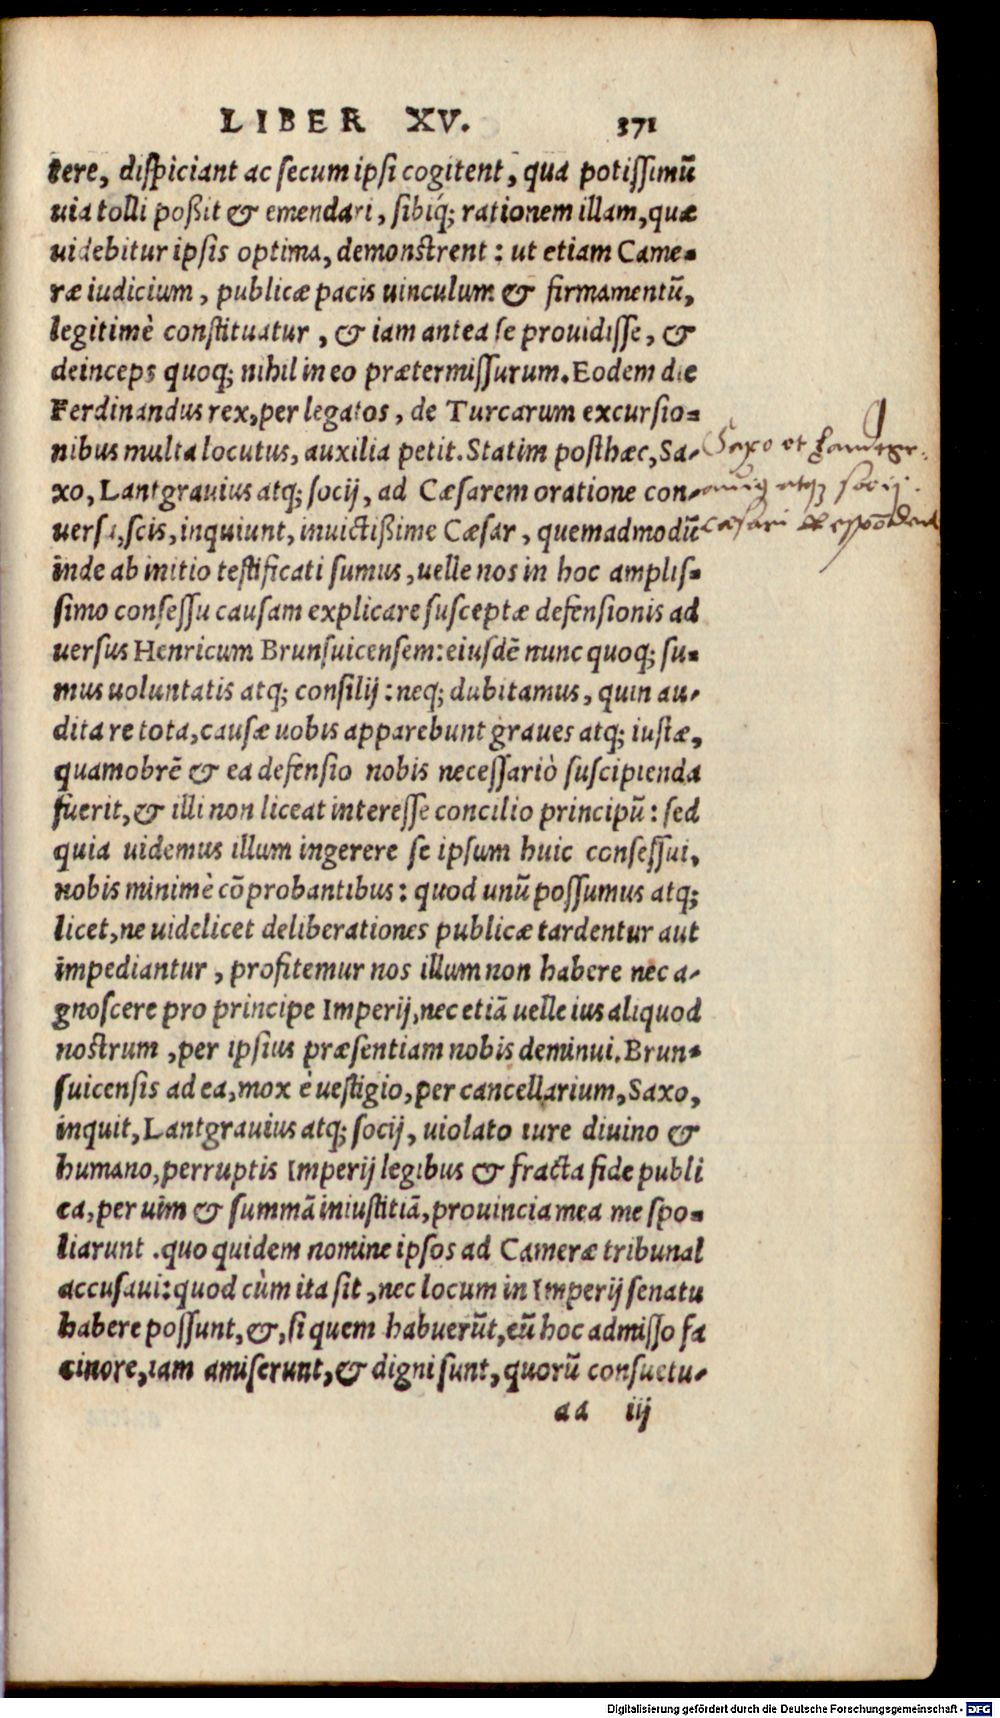 LIBER XV. 371
tere, dispiciant ac secum ipsi cogitent, qua potissimũ
uia tolli poßit & emendari, sibiq́; rationem illam, quæ
uidebitur ipsis optima, demonstrent: ut etiam Came-
ræ iudicium, publicæ pacis uinculum & firmamentũ,
legitimè constituatur, & iam antea se prouidisse, &
deinceps quoq; nihil in eo prætermissurum. Eodem die
Ferdinandus rex, per legatos, de Turcarum excursio-
nibus multa locutus, auxilia petit. Statim posthæc, Sa-
xo, Lantgrauius atq; socij, ad Cæsarem oratione con-
uersa, scis, inquiunt, inuictißime Cæsar, quemadmodũ
inde ab initio testificati sumus, uelle nos in hoc amplis-
simo consessu causam explicare susceptæ defensionis ad
uersus Henricum Brunsuicensem: eiusdẽ nunc quoq; su-
mus uoluntatis atq; consilij: neq; dubitamus, quin au-
dita re tota, causæ uobis apparebunt graues atq; iustæ,
quamobrẽ & ea defensio nobis necessariò suscipienda
fuerit, & illi non liceat interesse concilio principũ: sed
quia uidemus illum ingerere se ipsum huic consessui,
nobis minimè cõprobantibus: quod unũ possumus atq;
licet, ne uidelicet deliberationes publicæ tardentur aut
impediantur, profitemur nos illum non habere nec a-
gnoscere pro principe Imperij, nec etiã uelle ius aliquod
nostrum, per ipsius præsentiam nobis deminui. Brun-
suicensis ad ea, mox è uestigio, per cancellarium, Saxo,
inquit, Lantgrauius atq; socij, uiolato iure diuino &
humano, perruptis Imperij legibus & fracta fide publi
ca, per uim & summã iniustitiã, prouincia mea me spo-
liarunt. quo quidem nomine ipsos ad Cameræ tribunal
accusaui: quod cùm ita sit, nec locum in Imperij senatu
habere possunt, &, si quem habuerũt, eũ hoc admisso fa
cinore, iam amiserunt, & digni sunt, quorũ consuetu-
aa iij
Saxo et Landtgr-
auiq atq; socij
cæsari respõdent
Digitalisierung gefördert durch die Deutsche Forschungsgemeinschaft - DFG